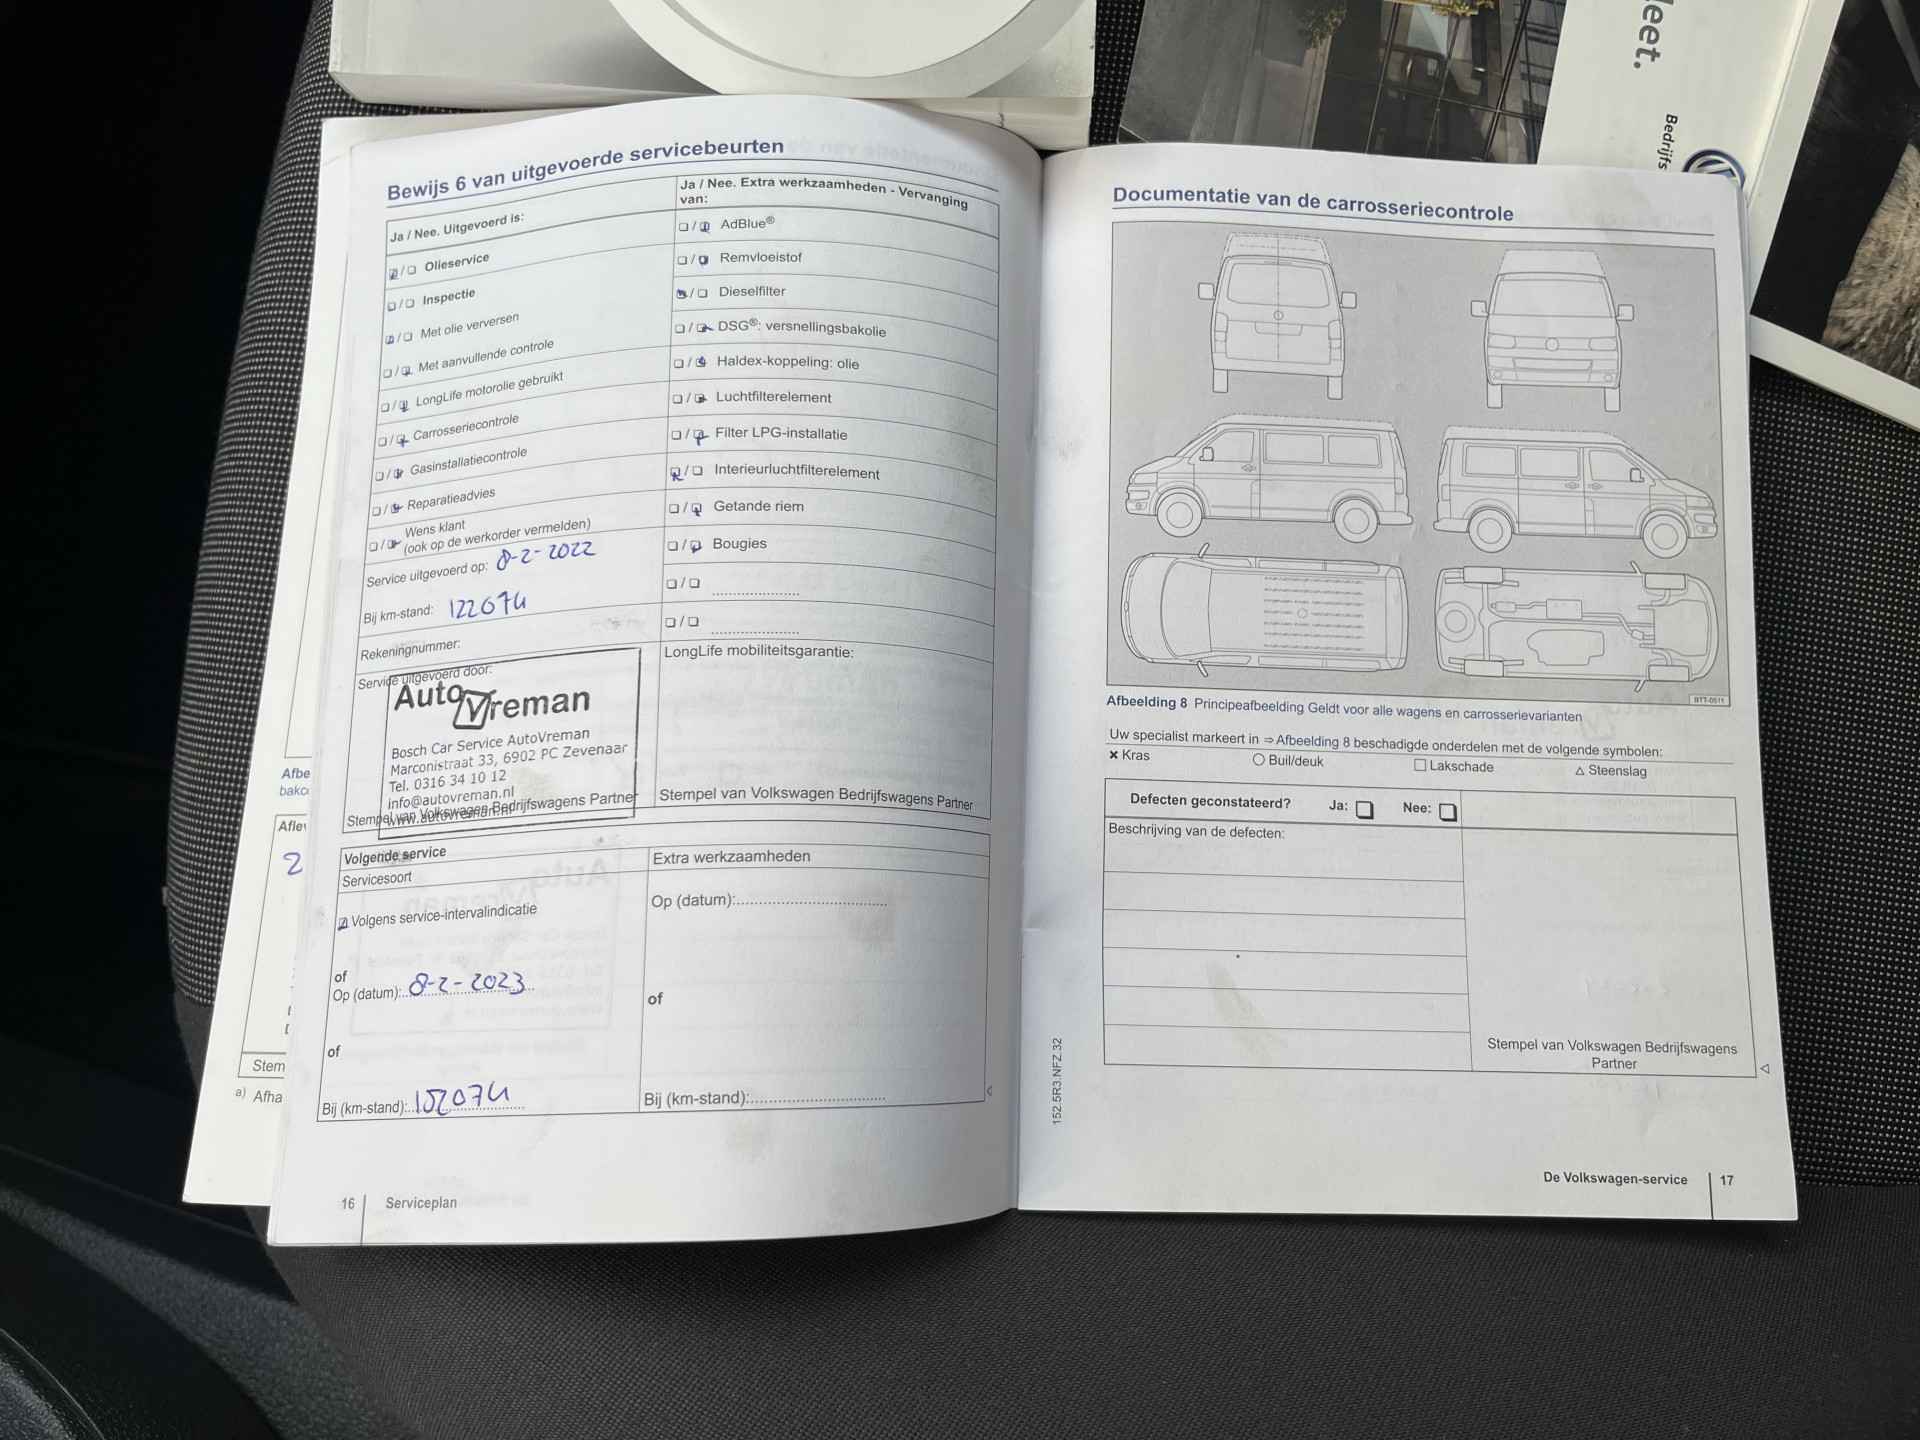 leet.
Bedrijfs
Bewijs 6 van uitgevoerde servicebeurten
Ja / Nee. Uitgevoerd is:
Olieservice
Inspectie
Met olie verversen
Met aanvullende controle
LongLife motorolie gebruikt
Carrosseriecontrole
Gasinstallatiecontrole
Reparatieadvies
Wens klant
(ook op de werkorder vermelden)
Service uitgevoerd op: 8-2-2022
Bij km-stand: 122074
Rekeningnummer:
Service uitgevoerd door:
Auto Vreman
Bosch Car Service AutoVreman
Marconistraat 33, 6902 PC Zevenaar
Tel. 0316 34 10 12
info@autovreman.nl
www.autovreman.nl
Stempel van Volkswagen Bedrijfswagens Partner
Ja / Nee. Extra werkzaamheden - Vervanging
van:
AdBlue®
Remvloeistof
Dieselfilter
DSG®: versnellingsbakolie
Haldex-koppeling: olie
Luchtfilterelement
Filter LPG-installatie
Interieurluchtfilterelement
Getande riem
Bougies
LongLife mobiliteitsgarantie:
Stempel van Volkswagen Bedrijfswagens Partner
Volgende service
Servicesoort
Volgens service-intervalindicatie
of
Op (datum): 8-2-2023
of
Bij (km-stand): 152074
Extra werkzaamheden
Op (datum):
of
Bij (km-stand):
16 Serviceplan
Afbe
bakco
Aflev
2
Stem
a) Afha
Documentatie van de carrosseriecontrole
BTT-0511
Afbeelding 8 Principeafbeelding Geldt voor alle wagens en carrosserievarianten
Uw specialist markeert in ⇒ Afbeelding 8 beschadigde onderdelen met de volgende symbolen:
× Kras ○ Buil/deuk □ Lakschade △ Steenslag
Defecten geconstateerd? Ja: Nee:
Beschrijving van de defecten:
Stempel van Volkswagen Bedrijfswagens
Partner
152.5R3.NFZ.32
De Volkswagen-service 17